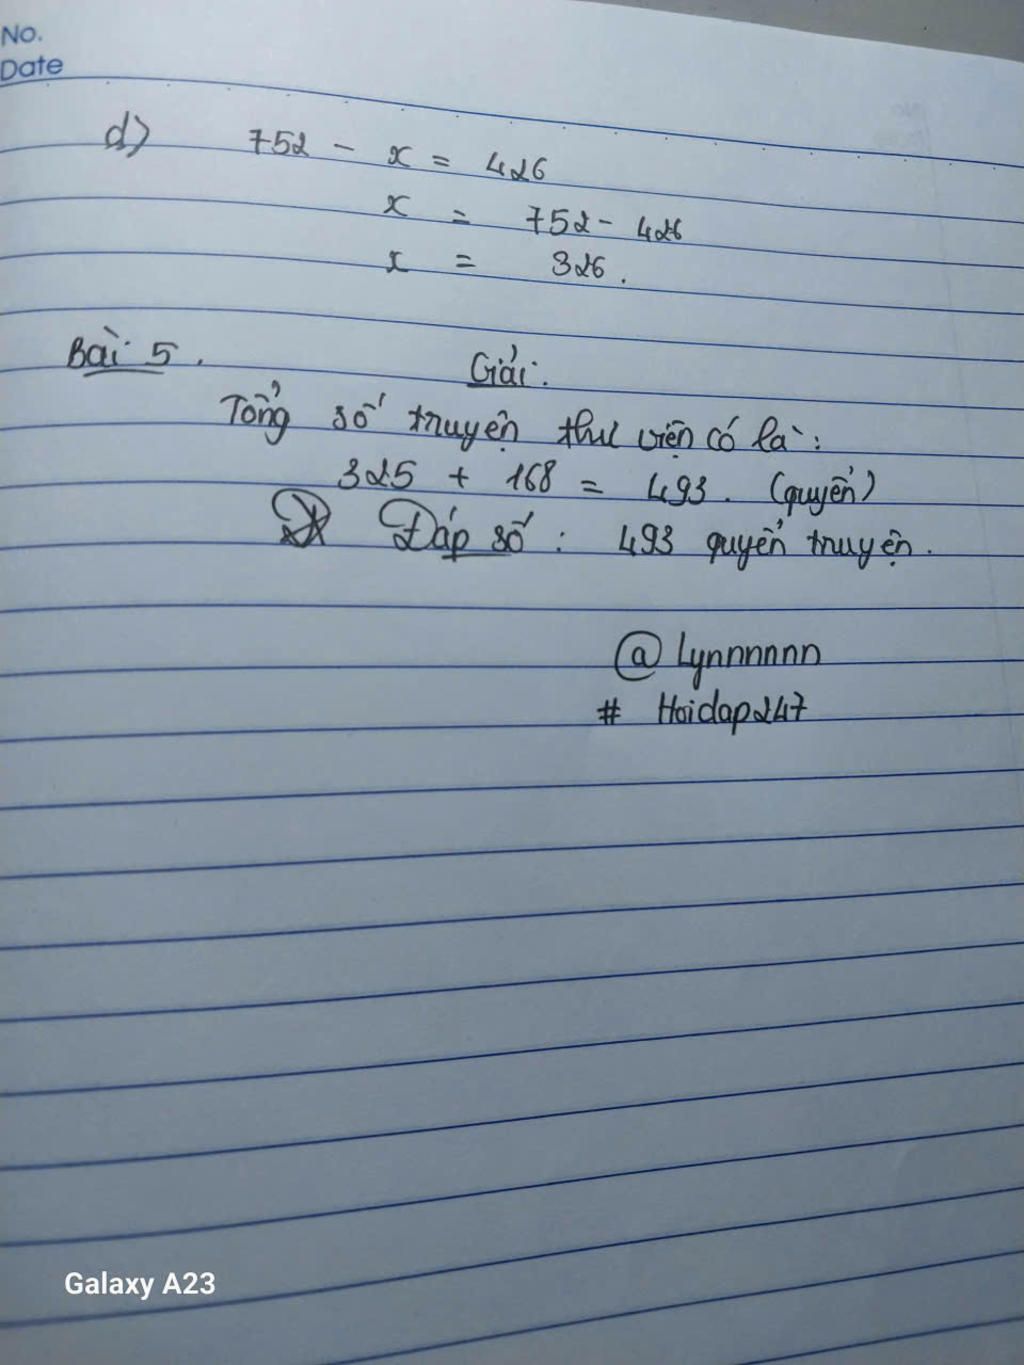 No.
Date
d) 752 - x = 426
x = 752 - 426
x = 326.
Bài 5.
Giải:
Tổng số truyện thư viện có là:
325 + 168 = 493. (quyển)
Đáp số: 493 quyển truyện.
@Lynnnnnn
# Hoidap247
Galaxy A23